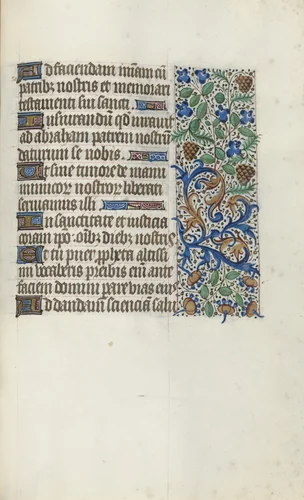 Ad faciendam miam cū
patribz nostris et memorari
testamenti sui sancti.
Iusiurandū qd iurauit
ad abraham patrem nostrū
daturum se nobis.
Ut sine timore de manu
inimicor nostror liberati
seruiamus illi
In sanctitate et iusticia
coram ipo oibz diebz nostris
Et tu puer ppheta altissi
mi vocaberis preibis eni ante
faciem domini parare vias eius
Ad dandam scienciam salu